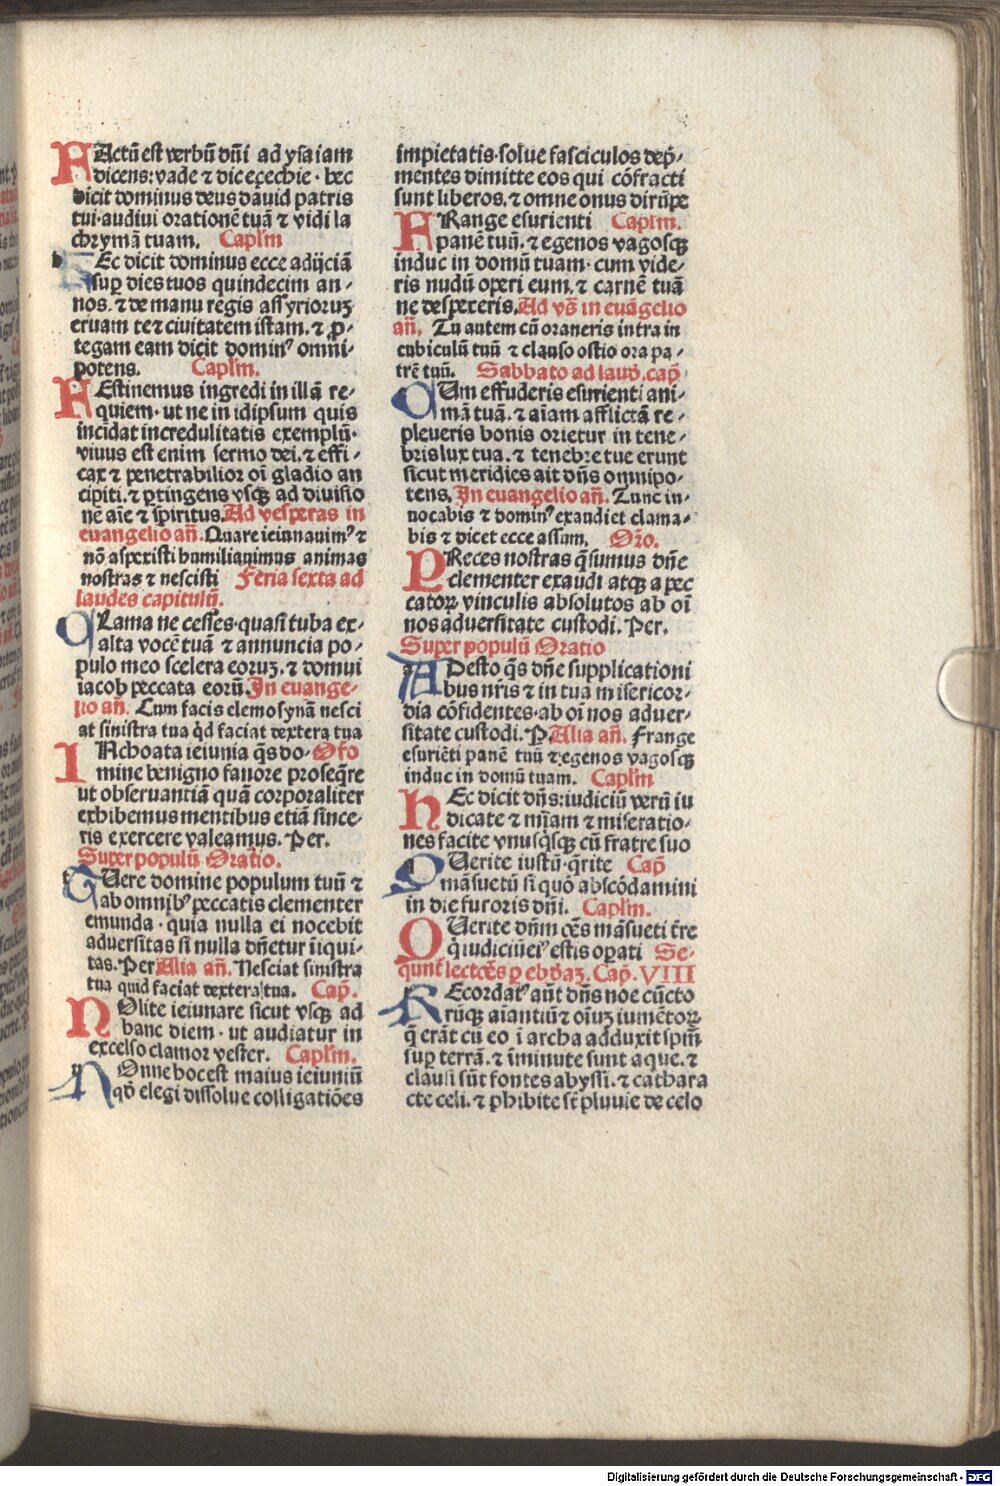 FActū est verbū dn̄i ad ysaiam
dicens: vade ⁊ dic eȥechie · hec
dicit dominus deus dauid patris
tui· audiui orationē tuā ⁊ vidi la
chrymā tuam. Capl'm
HEc dicit dominus ecce adijciā
sup̄ dies tuos quindecim an-
nos. ⁊ de manu regis assyrioruȝ
eruam te ⁊ ciuitatem istam. ⁊ ꝓ-
tegam eam dicit domin⁹ omni-
potens. Capl'm.
FEstinemus ingredi in illā re-
quiem· ut ne in idipsum quis
incidat incredulitatis exemplū·
viuus est enim sermo dei. ⁊ effi-
cax ⁊ penetrabilior oī gladio an
cipiti. ⁊ ꝑtingens vsqꝫ ad diuisio
nē aīe ⁊ spiritus. Ad vesperas in
euangelio an̄. Quare ieiunauim⁹ ⁊
nō aspexisti humiliauimus animas
nostras ⁊ nescisti Feria sexta ad
laudes capitulū.
CLama ne cesses· quasi tuba ex-
alta vocē tuā ⁊ annuncia po-
pulo meo scelera eoruȝ. ⁊ domui
iacob peccata eorū. In euange-
lio an̄. Cum facis elemosynā nesci
at sinistra tua qd̄ faciat dextera tua
INchoata ieiunia q̄s do- Oro
mine benigno fauore proseq̄re
ut obseruantiā quā corporaliter
exhibemus mentibus etiā since-
ris exercere valeamus. Per.
Super populū Oratio.
TUere domine populum tuū ⁊
ab omnib⁹ peccatis clementer
emunda · quia nulla ei nocebit
aduersitas si nulla dn̄etur īiqui-
tas. Per Alia an̄. Nesciat sinistra
tua quid faciat dextera tua. Cap̄.
NOlite ieiunare sicut vsqꝫ ad
hanc diem · ut audiatur in
excelso clamor vester. Capl'm.
NOnne hoc est maius ieiuniū
qd̄ elegi dissolue colligatiōes
impietatis· solue fasciculos dep̄-
mentes dimitte eos qui cōfracti
sunt liberos. ⁊ omne onus dirūpe
FRange esurienti Capl'm.
panē tuū. ⁊ egenos vagosqꝫ
induc in domū tuam· cum vide-
ris nudū operi eum. ⁊ carnē tuā
ne despexeris. Ad vs̄ in euāgelio
an̄. Tu autem cū oraueris intra in
cubiculū tuū ⁊ clauso ostio ora pa-
trē tuū. Sabbato ad laud. cap̄
CUm effuderis esurienti ani-
mā tuā. ⁊ aīam afflictā re-
pleueris bonis orietur in tene-
bris lux tua. ⁊ tenebre tue erunt
sicut meridies ait dn̄s omnipo-
tens. In euangelio an̄. Tunc in-
uocabis ⁊ domin⁹ exaudiet clama-
bis ⁊ dicet ecce assum. Oro.
PReces nostras q̄sumus dn̄e
clementer exaudi atqꝫ a pec
catoꝝ vinculis absolutos ab oī
nos aduersitate custodi. Per.
Super populū Oratio
ADesto q̄s dn̄e supplicationi
bus nr̄is ⁊ in tua misericor-
dia cōfidentes· ab oī nos aduer-
sitate custodi. P. Alia an̄. Frange
esuriēti panē tuū ⁊ egenos vagosqꝫ
induc in domū tuam. Capl'm
HEc dicit dn̄s: iudiciū verū iu
dicate ⁊ mīam ⁊ miseratio-
nes facite vnusq̇sqꝫ cū fratre suo
QUerite iustū· q̄rite Cap̄
māsuetū si quō abscōdamini
in die furoris dn̄i. Capl'm.
QUerite dn̄m oēs māsueti tr̄e
q̇ iudiciū ei⁹ estis oꝑati Se-
qunt̄ lectōes ꝑ ebdaȝ. Cap̄. VIII
REcordat⁹ aūt dn̄s noe cūcto
rūqꝫ aīantiū ⁊ oīuȝ iumētoꝝ
q̄ erāt cū eo ī archa adduxit spm̄
sup̄ terrā. ⁊ īminute sunt aque. ⁊
clausi sūt fontes abyssi. ⁊ cathara
cte celi. ⁊ ꝓhibite st̄ pluuie de celo
Digitalisierung gefördert durch die Deutsche Forschungsgemeinschaft - DFG